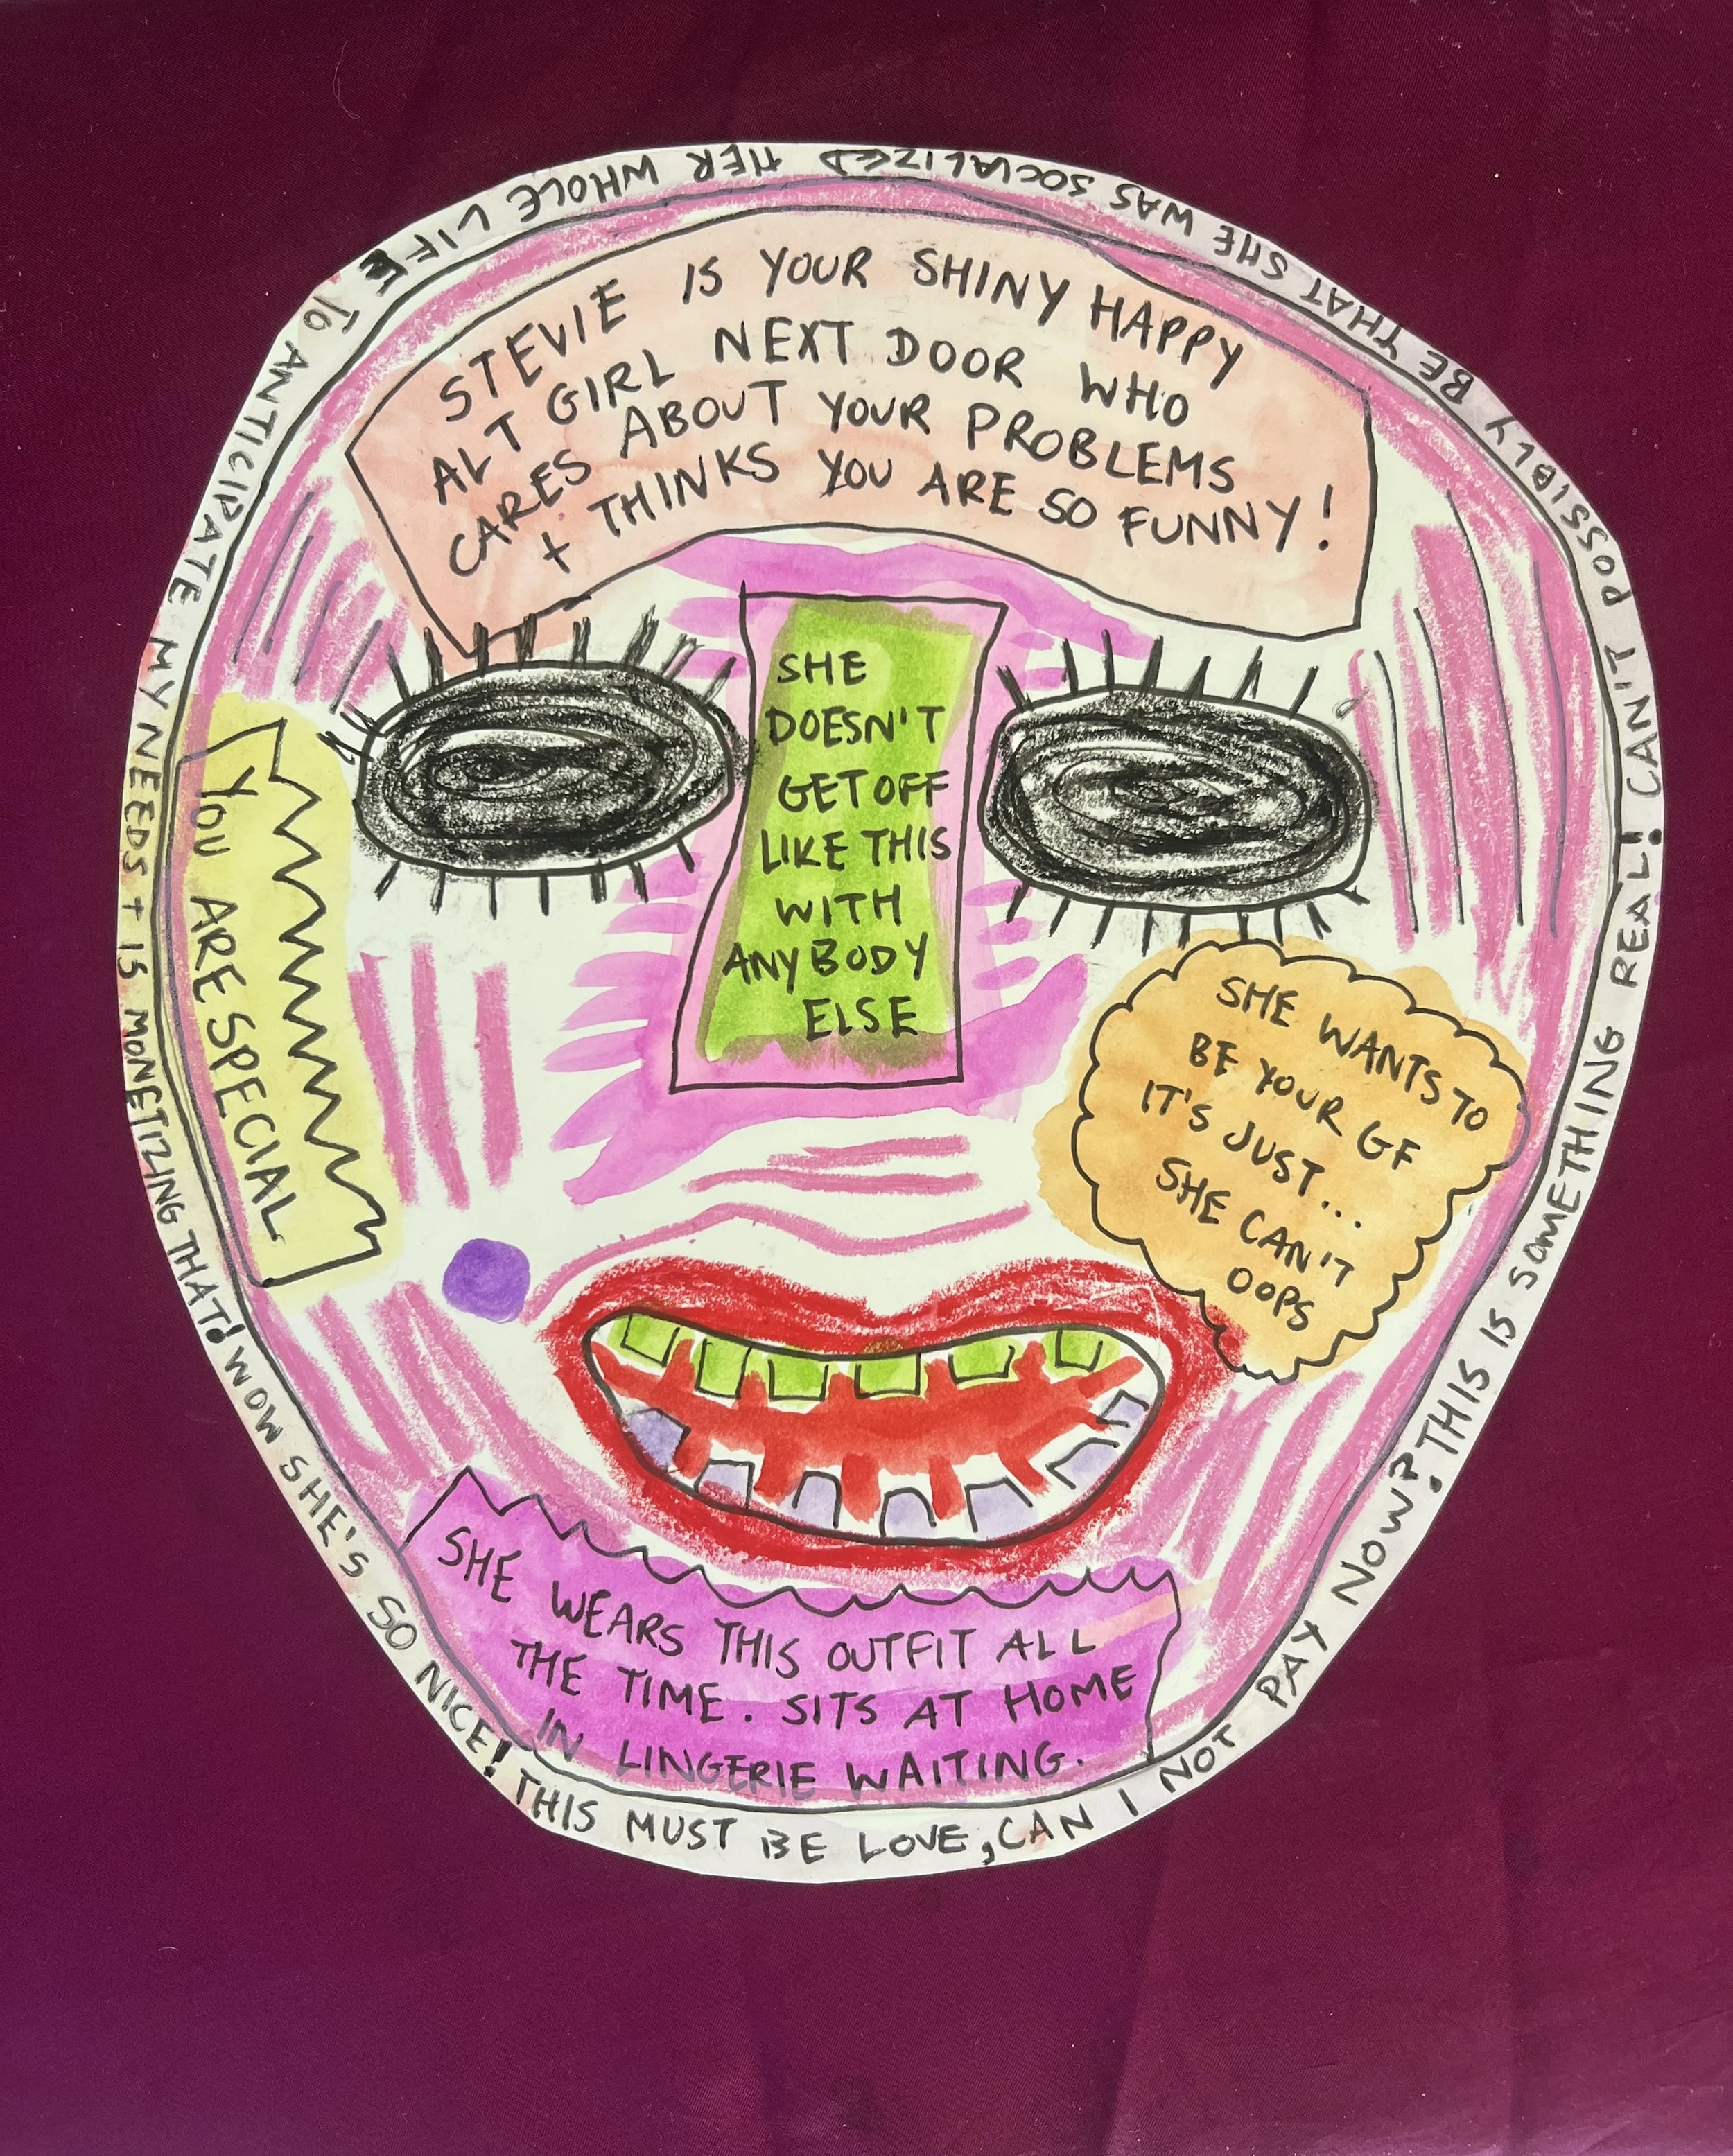 STEVIE IS YOUR SHINY HAPPY
ALT GIRL NEXT DOOR WHO
CARES ABOUT YOUR PROBLEMS
+ THINKS YOU ARE SO FUNNY!
SHE
DOESN'T
GET OFF
LIKE THIS
WITH
ANYBODY
ELSE
YOU ARE SPECIAL
SHE WANTS TO
BE YOUR GF
IT'S JUST...
SHE CAN'T
OOPS
SHE WEARS THIS OUTFIT ALL
THE TIME. SITS AT HOME
IN LINGERIE WAITING.
WOW SHE'S SO NICE! THIS MUST BE LOVE, CAN I NOT PAY NOW? THIS IS SOMETHING REAL! CAN'T POSSIBLY BE THAT SHE WAS SOCIALIZED HER WHOLE LIFE TO ANTICIPATE MY NEEDS + IS MONETIZING THAT!